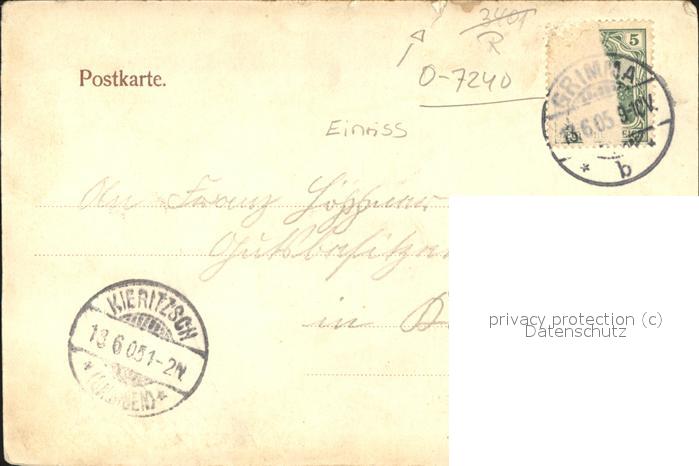 3401
R
5
Postkarte.
O-7240
GRIMMA
13.6.05 9-10V.
* b *
Einriss
An Franz Höppner
Gutsbesitzer
in
KIERITZSCH
13 6 05 1-2N.
*(SACHSEN)*
privacy protection (c)
Datenschutz